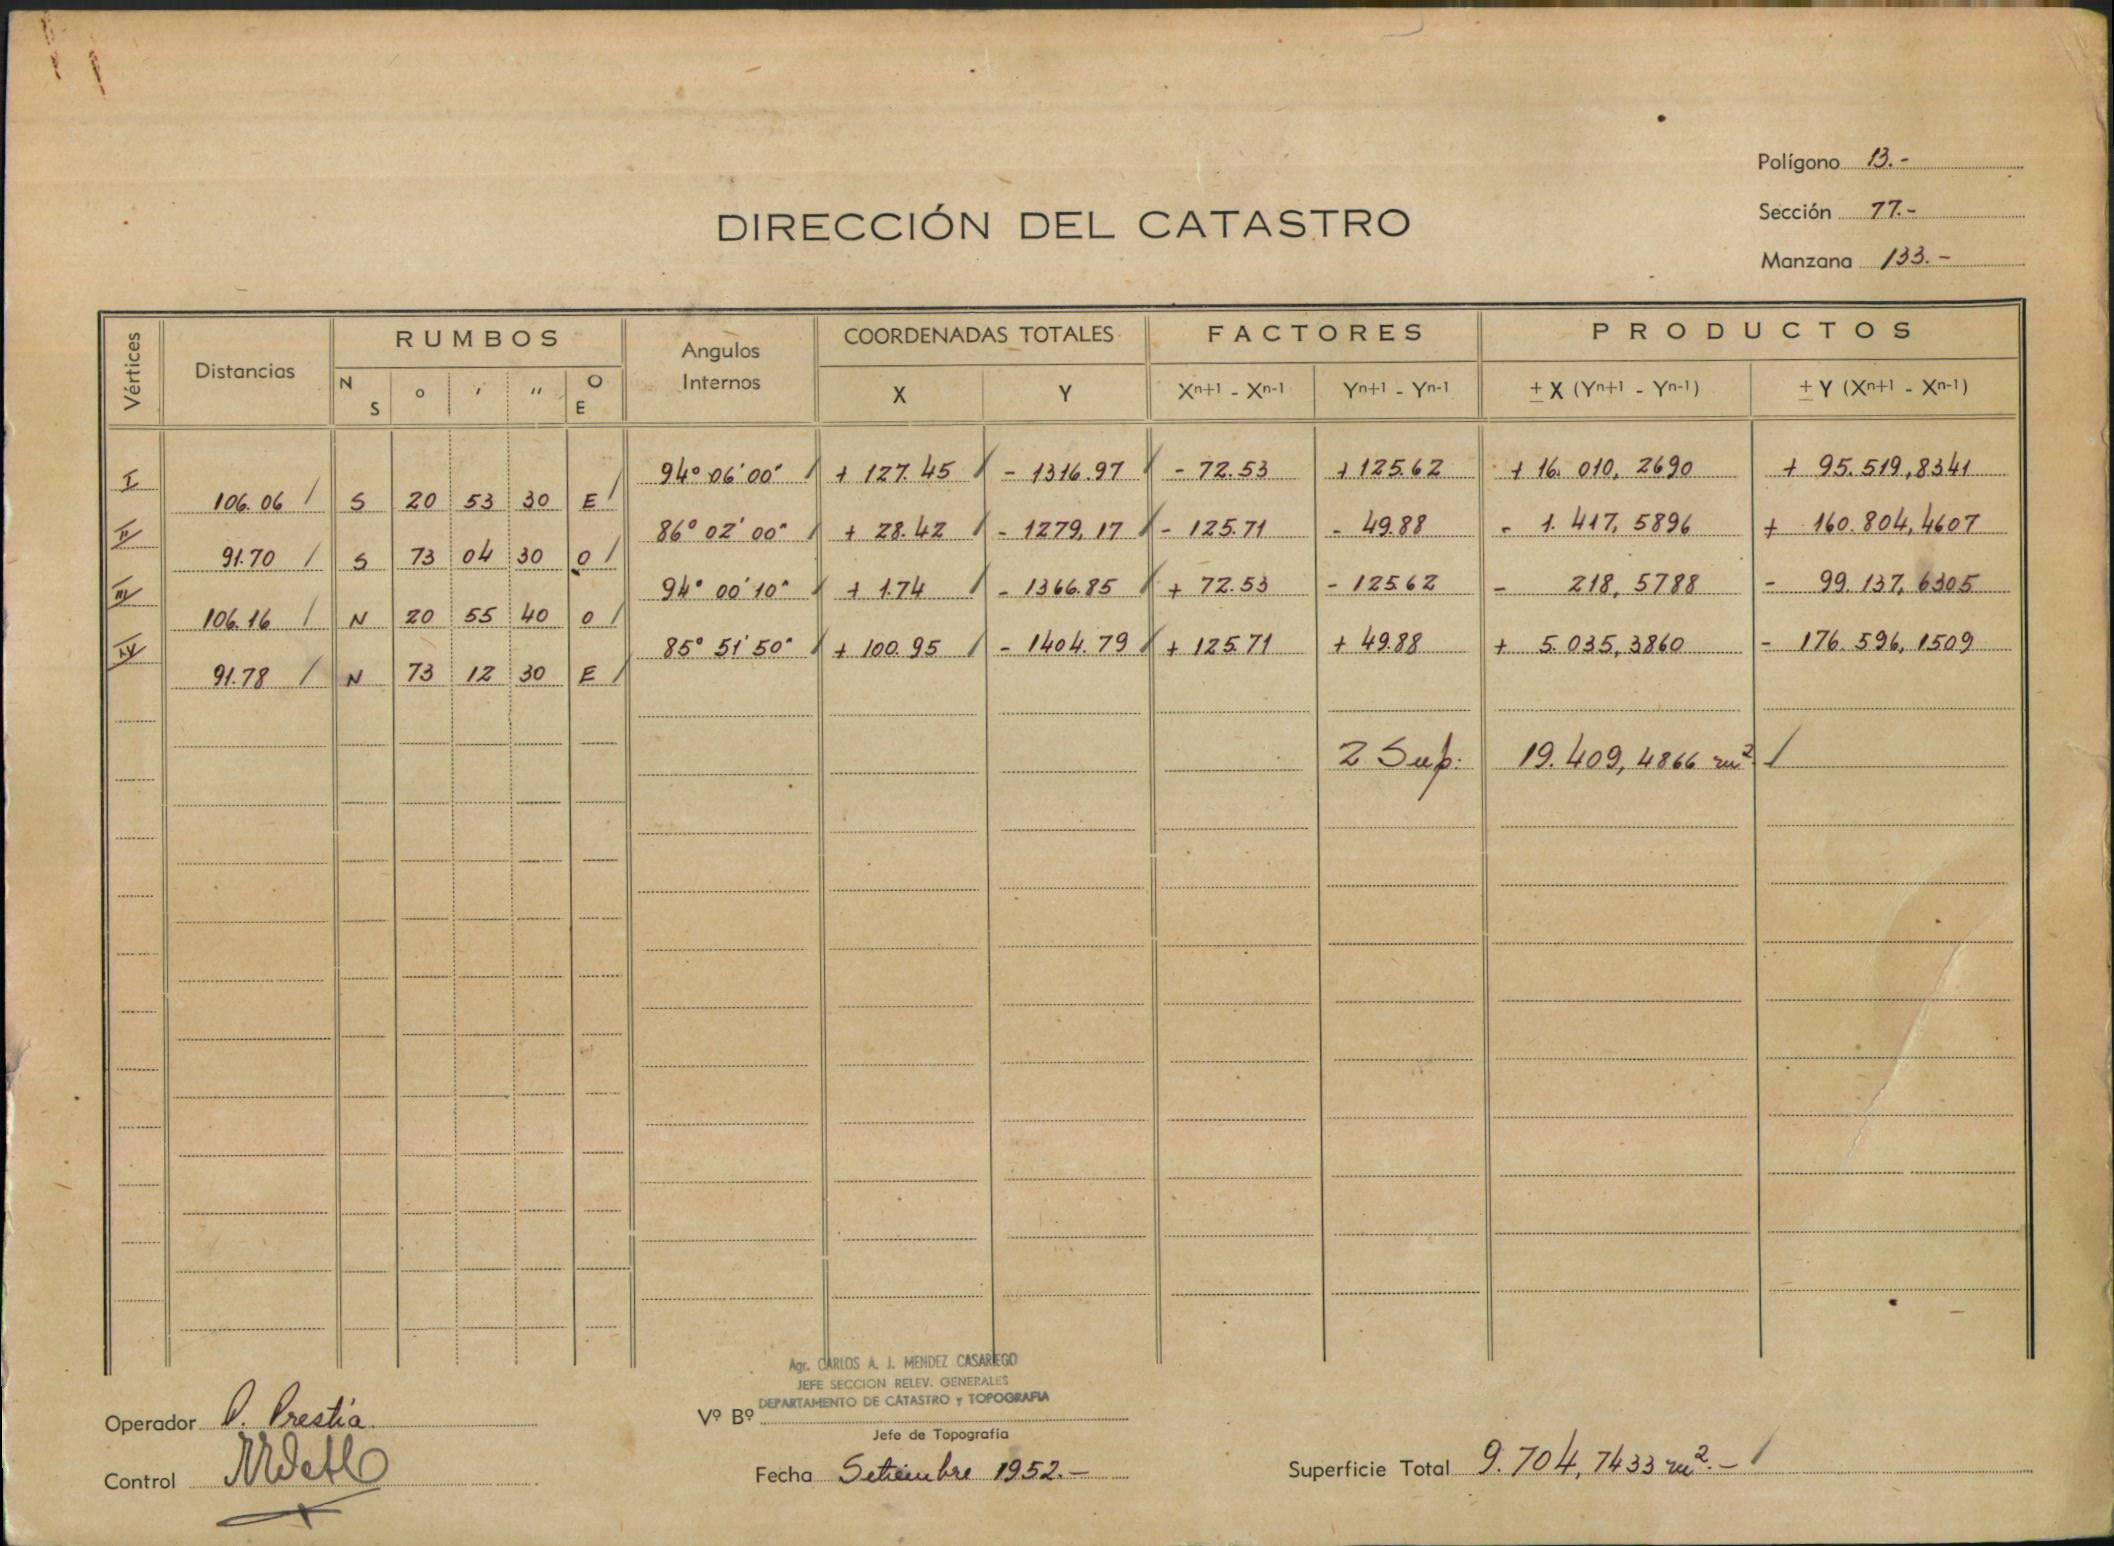 Polígono 13.-
Sección 77.-
Manzana 133.-
DIRECCIÓN DEL CATASTRO
Vértices Distancias RUMBOS Angulos Internos COORDENADAS TOTALES FACTORES PRODUCTOS
N S ° ' " O E X Y Xn+1 - Xn-1 Yn+1 - Yn-1 ± X (Yn+1 - Yn-1) ± Y (Xn+1 - Xn-1)
I 94° 06' 00" / + 127.45 / - 1316.97 / - 72.53 + 125.62 + 16.010,2690 + 95.519,8341
106.06 / S 20 53 30 E /
II 86° 02' 00" / + 28.42 / - 1279,17 / - 125.71 - 49.88 - 1.417,5896 + 160.804,4607
91.70 / S 73 04 30 O /
III 94° 00' 10" / + 1.74 / - 1366.85 / + 72.53 - 125.62 - 218,5788 - 99.137,6305
106.16 / N 20 55 40 O /
IV 85° 51' 50" / + 100.95 / - 1404.79 / + 125.71 + 49.88 + 5.035,3860 - 176.596,1509
91.78 / N 73 12 30 E /
2 Sup. 19.409,4866 m² /
Agr. CARLOS A. J. MENDEZ CASARIEGO
JEFE SECCION RELEV. GENERALES
DEPARTAMENTO DE CATASTRO y TOPOGRAFIA
Operador P. Prestia.
Vº Bº
Jefe de Topografía
Control
Fecha Setiembre 1952.-
Superficie Total 9.704,7433 m².- /